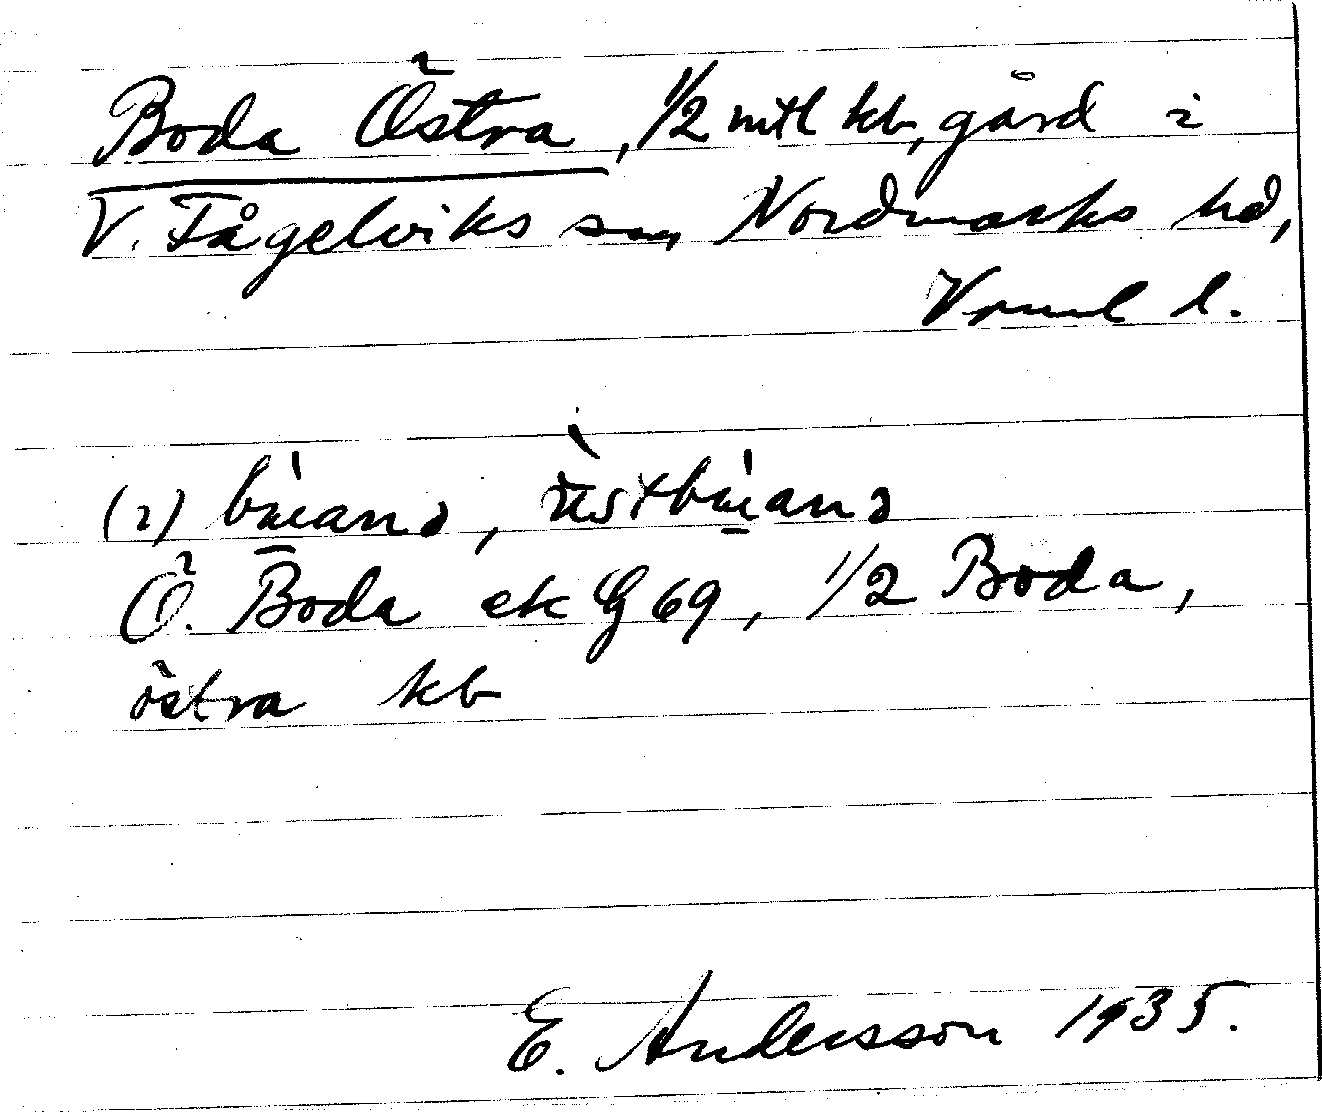 Boda Östra, 1/2 mtl kb, gård i
V. Fågelviks sn, Nordmarks hd,
Vrml l.
(i)
Ö. Boda ek G 69, 1/2 Boda,
östra kb
E. Andersson 1935.